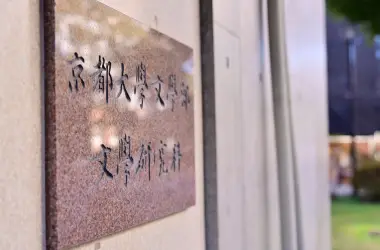 京都大學文學部
文學研究科